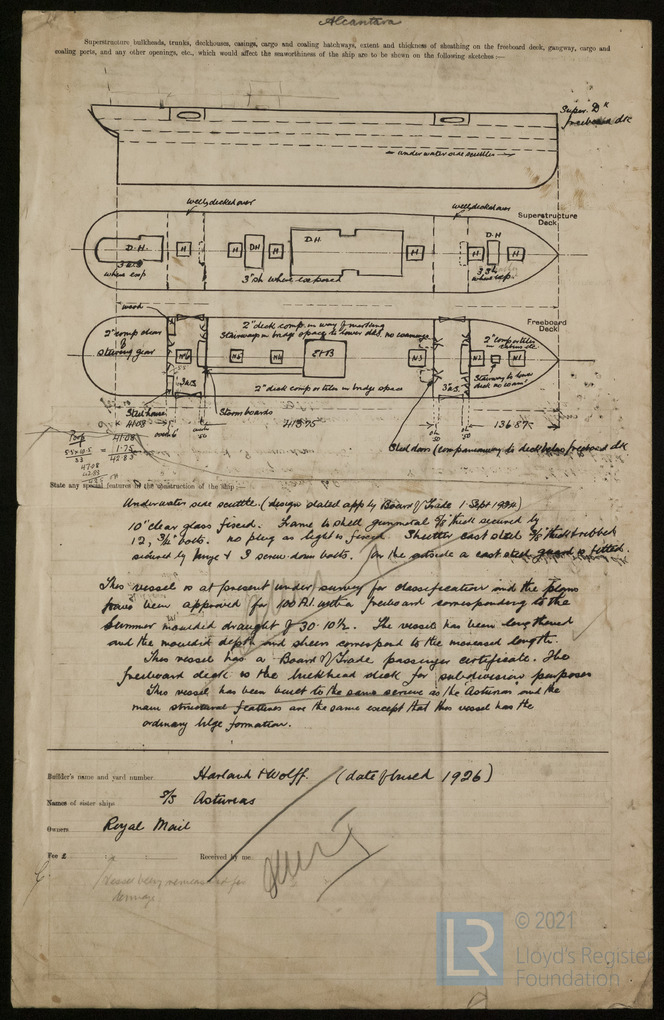 Alcantara
Superstructure bulkheads, trunks, deckhouses, casings, cargo and coaling hatchways, extent and thickness of sheathing on the freeboard deck, gangway, cargo and
coaling ports, and any other openings, etc., which would affect the seaworthiness of the ship are to be shown on the following sketches :—
Super. Dk
freeboard dk
underwater side scuttles
Well decked over
Well decked over
Superstructure
Deck
D.H.
H
H
DH
H
D.H.
H
H
D.H.
H
where exp
3" sh where exposed
3" sh
where exp.
Freeboard
Deck
2" deck comp. in way of
Stairways in bridge space to lower dks. no coamings
2" comp
&
steering gear
E & B
2" comp or tiles
Stairway to lower
deck no coam
2" deck comp or tiles in bridge space
Storm boards
41.08
136.87
41.08
1.75
42.83
Steel doors (companionway to deck below freeboard dk
State any special features of the construction of the ship :—
Underwater side scuttle. (design dated app by Board of Trade 1 Sept 1924)
10" clear glass fixed. Frame to shell gunmetal thick secured by
12, 3/4" bolts. no plug as light is fixed. Shutter cast steel thick & rubbed
secured by hinge & 3 screw down bolts. On the outside a cast steel guard is fitted.
This vessel is at present under survey for classification and the plans
have been approved for 100 A1 with a freeboard corresponding to the
summer moulded draught of 30-10½. The vessel has been lengthened
and the moulded depth and sheer correspond to the increased length.
This vessel has a Board of Trade passenger certificate. The
freeboard deck is the bulkhead deck for subdivision purposes
This vessel has been built to the same service as the Asturias and the
main structural features are the same except that this vessel has the
ordinary bilge formation.
Builder's name and yard number Harland & Wolff. (date of build 1926)
Names of sister ships S/S Asturias
Owners Royal Mail
Fee £ Received by me
Vessel being remeasured for
tonnage.
LR
© 2021
Lloyd's Register
Foundation